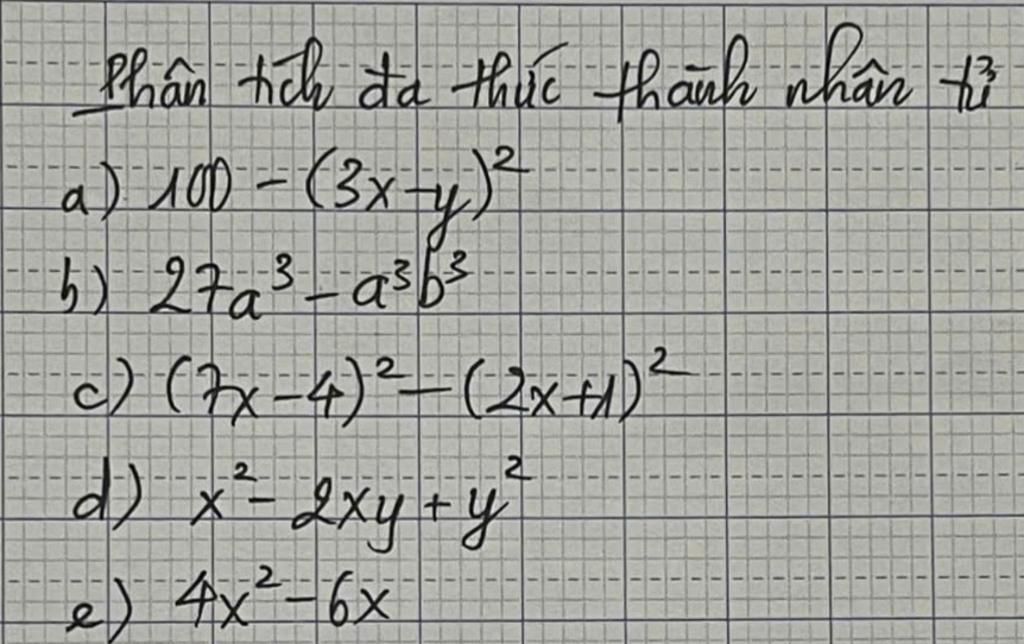 Phân tích đa thức thành nhân tử
a) 100 - (3x-y)²
b) 27a³ - a³b³
c) (7x-4)² - (2x+1)²
d) x² - 2xy + y²
e) 4x² - 6x